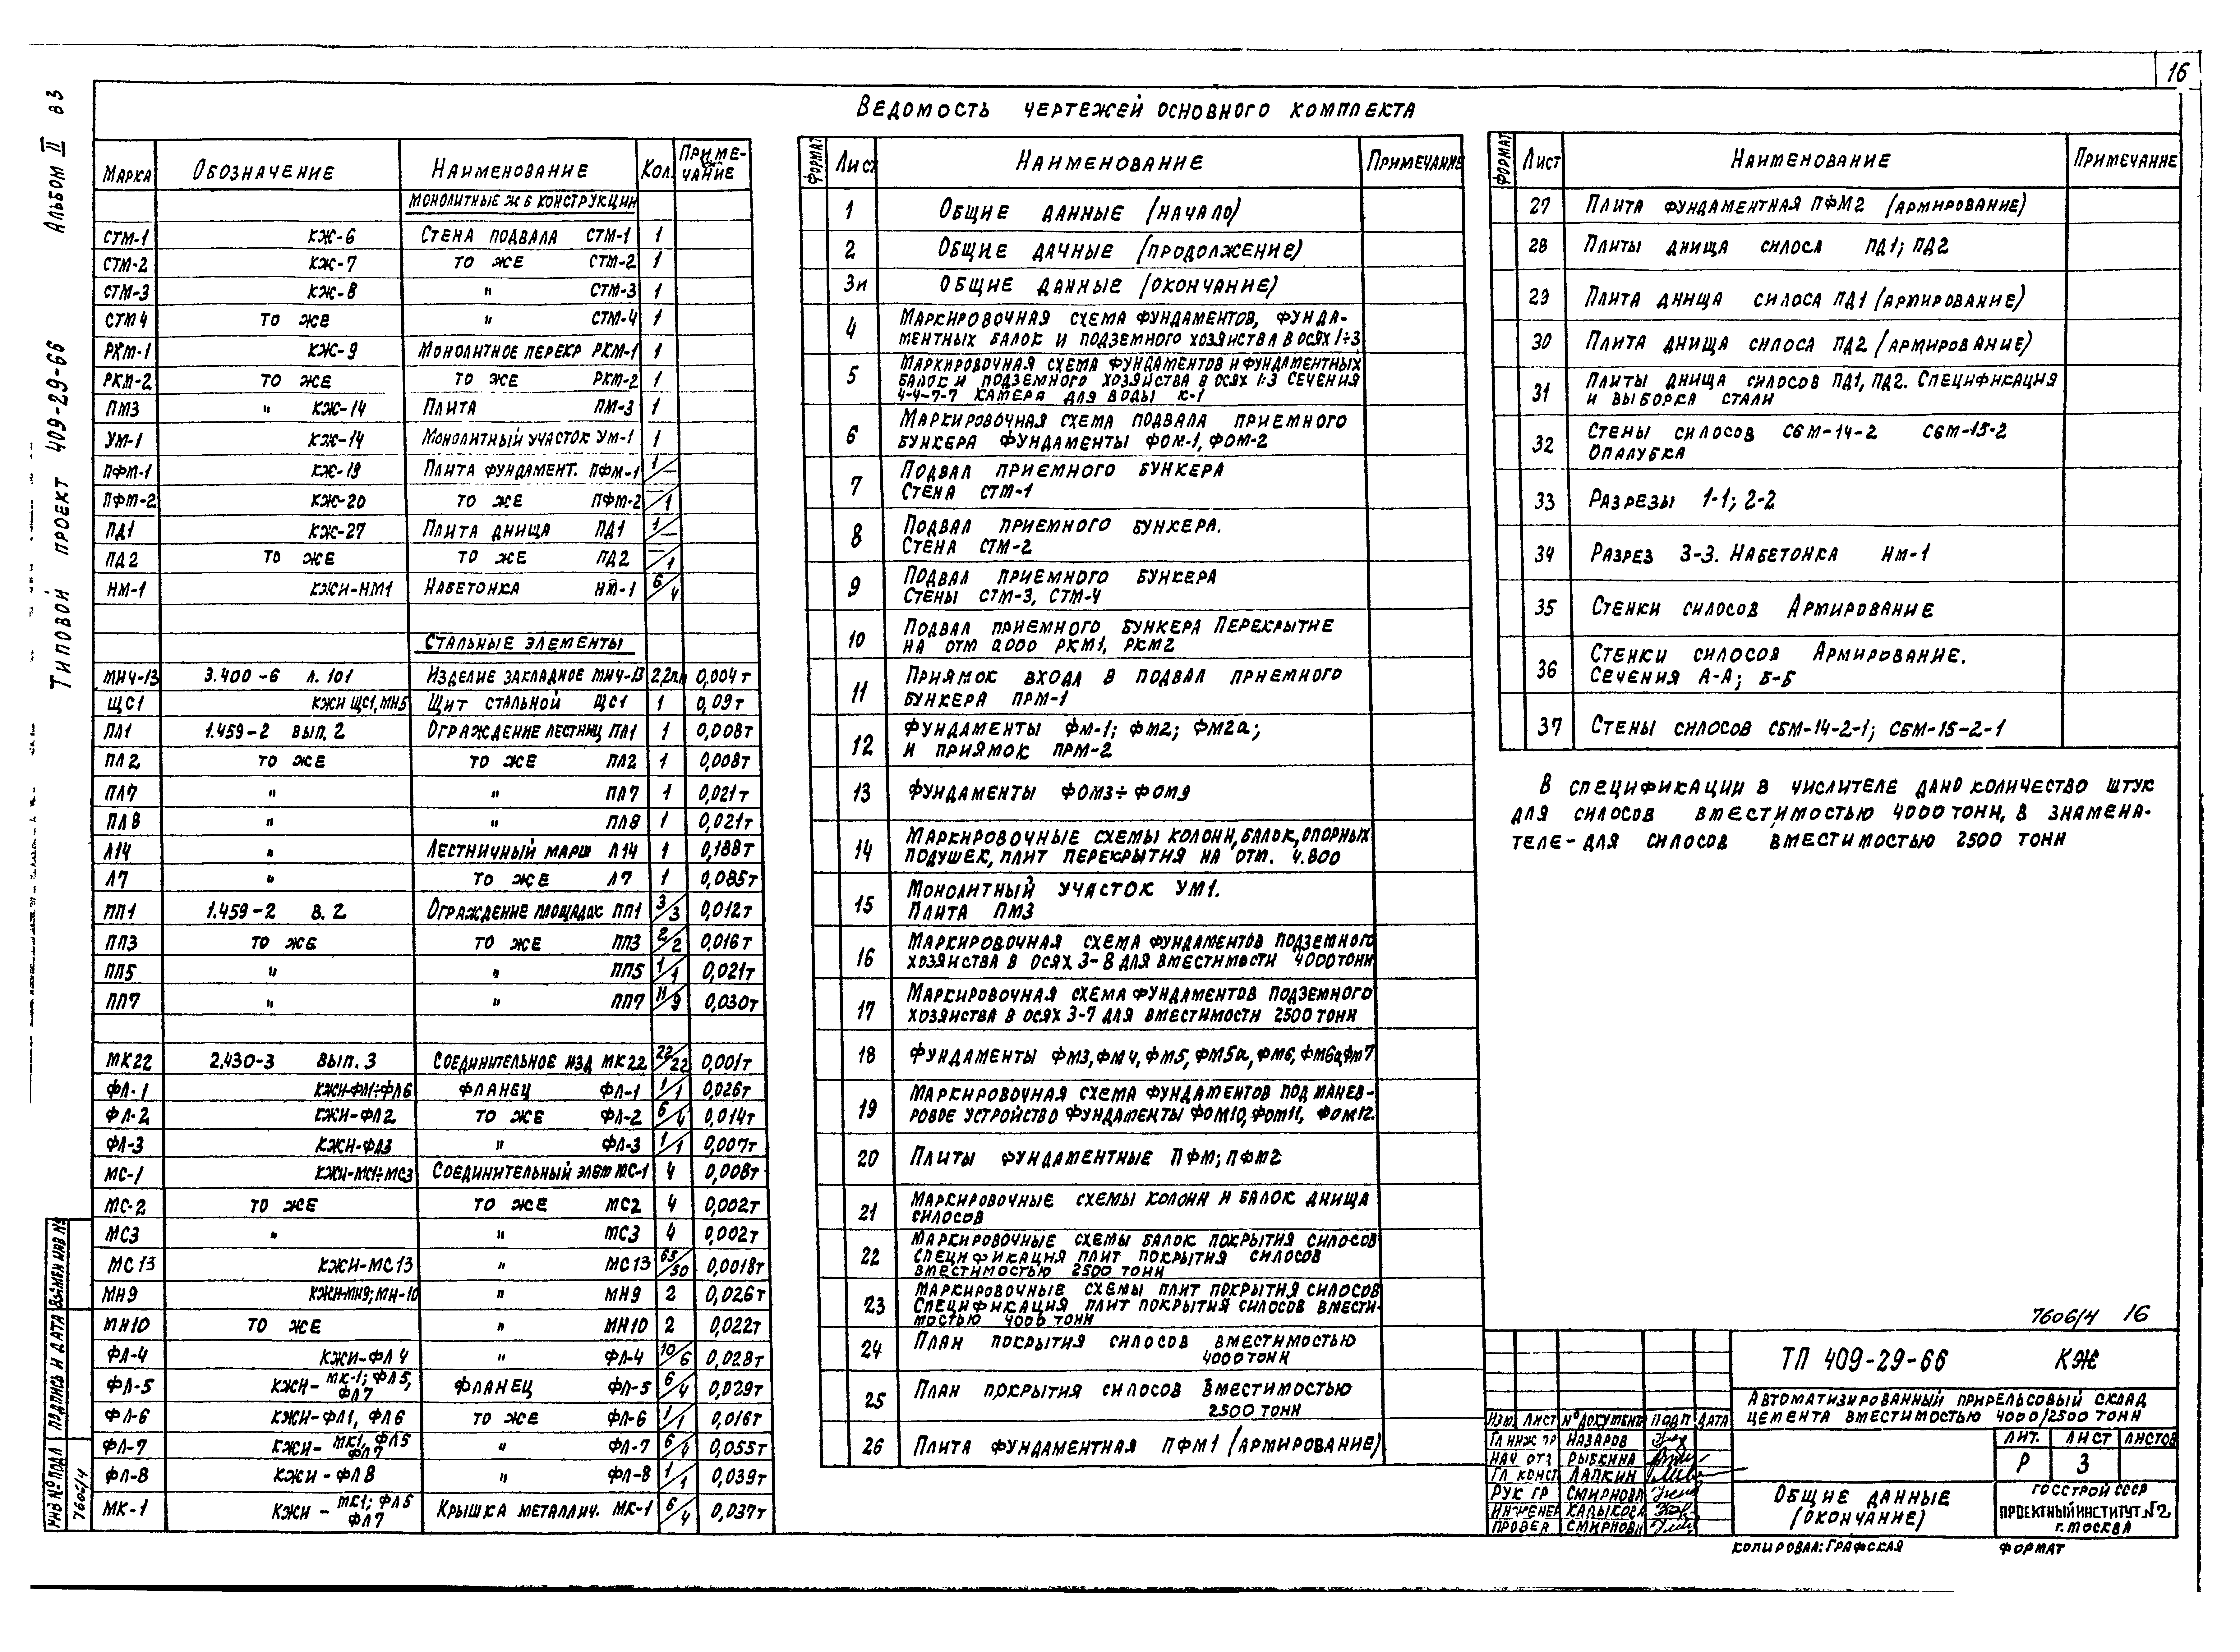 16
Альбом II в3
Типовой проект 409-29-66
Ведомость чертежей основного комплекта
Марка Обозначение Наименование Кол. Примечание
Монолитные ж б конструкции
СТМ-1 КЖ-6 Стена подвала СТМ-1 1
СТМ-2 КЖ-7 то же СТМ-2 1
СТМ-3 КЖ-8 " СТМ-3 1
СТМ4 то же " СТМ-4 1
РКМ-1 КЖ-9 Монолитное перекр РКМ-1 1
РКМ-2 то же то же РКМ-2 1
ПМ3 " КЖ-14 Плита ПМ-3 1
УМ-1 КЖ-14 Монолитный участок УМ-1 1
ПФМ-1 КЖ-19 Плита фундамент. ПФМ-1 1/—
ПФМ-2 КЖ-20 то же ПФМ-2 —/1
ПД1 КЖ-27 Плита днища ПД1 1/—
ПД2 то же то же ПД2 —/1
НМ-1 КЖИ-НМ1 Набетонка НМ-1 6/4
Стальные элементы
МН4-13 3.400-6 л. 101 Изделие закладное МН4-13 2,2пм 0,004т
ЩС1 КЖИ ЩС1, МН5 Щит стальной ЩС1 1 0,09т
ПЛ1 1.459-2 вып. 2 Ограждение лестниц ПЛ1 1 0,008т
ПЛ2 то же то же ПЛ2 1 0,008т
ПЛ7 " " ПЛ7 1 0,021т
ПЛ8 " " ПЛ8 1 0,021т
Л14 " Лестничный марш Л14 1 0,188т
Л7 " то же Л7 1 0,085т
ПП1 1.459-2 в. 2 Ограждение площадок ПП1 3/3 0,012т
ПП3 то же то же ПП3 2/2 0,016т
ПП5 " " ПП5 1/1 0,021т
ПП7 " " ПП7 11/9 0,030т
МК22 2,430-3 вып. 3 Соединительное изд МК22 22/22 0,001т
ФЛ-1 КЖИ-ФЛ1÷ФЛ6 Фланец ФЛ-1 1/1 0,026т
ФЛ-2 КЖИ-ФЛ2 то же ФЛ-2 6/4 0,014т
ФЛ-3 КЖИ-ФЛ3 " ФЛ-3 1/1 0,007т
МС-1 КЖИ-МС1÷МС3 Соединительный элем МС-1 4 0,008т
МС-2 то же то же МС2 4 0,002т
МС3 " " МС3 4 0,002т
МС13 КЖИ-МС13 " МС13 65/50 0,0018т
МН9 КЖИ-МН9; МН-10 " МН9 2 0,026т
МН10 то же " МН10 2 0,022т
ФЛ-4 КЖИ-ФЛ4 " ФЛ-4 10/6 0,028т
ФЛ-5 КЖИ-МК-1; ФЛ5, ФЛ7 Фланец ФЛ-5 6/4 0,029т
ФЛ-6 КЖИ-ФЛ1, ФЛ6 то же ФЛ-6 1/1 0,016т
ФЛ-7 КЖИ-МК1, ФЛ5 ФЛ7 " ФЛ-7 6/4 0,055т
ФЛ-8 КЖИ-ФЛ8 " ФЛ-8 1/1 0,039т
МК-1 КЖИ-МК1; ФЛ5 ФЛ7 Крышка металлич. МК-1 6/4 0,037т
Формат Лист Наименование Примечание
1 Общие данные (начало)
2 Общие дачные (продолжение)
3и Общие данные (окончание)
4 Маркировочная схема фундаментов, фунда-
ментных балок и подземного хозяйства в осях 1÷3
5 Маркировочная схема фундаментов и фундаментных
балок и подземного хозяйства в осях 1:3 Сечения
4-4-7-7 камера для воды К-1
6 Маркировочная схема подвала приемного
бункера фундаменты ФОМ-1, ФОМ-2
7 Подвал приемного бункера
Стена СТМ-1
8 Подвал приемного бункера.
Стена СТМ-2
9 Подвал приемного бункера
Стены СТМ-3, СТМ-4
10 Подвал приемного бункера Перекрытие
на отм 0.000 РКМ1, РКМ2
11 Приямок входа в подвал приемного
бункера ПРМ-1
12 Фундаменты ФМ-1; ФМ2; ФМ2а;
и приямок ПРМ-2
13 Фундаменты ФОМ3÷ФОМ9
14 Маркировочные схемы колонн, балок, опорных
подушек, плит перекрытия на отм. 4.800
15 Монолитный участок УМ1.
Плита ПМ3
16 Маркировочная схема фундаментов подземного
хозяйства в осях 3-8 для вместимости 4000 тонн
17 Маркировочная схема фундаментов подземного
хозяйства в осях 3-7 для вместимости 2500 тонн
18 Фундаменты ФМ3, ФМ4, ФМ5, ФМ5а, ФМ6, ФМ6а, ФМ7
19 Маркировочная схема фундаментов под манев-
ровое устройство фундаменты ФОМ10, ФОМ11, ФОМ12.
20 Плиты фундаментные ПФМ; ПФМ2
21 Маркировочные схемы колонн и балок днища
силосов
22 Маркировочные схемы балок покрытия силосов
Спецификация плит покрытия силосов
вместимостью 2500 тонн
23 Маркировочные схемы плит покрытия силосов
Спецификация плит покрытия силосов вмести-
мостью 4000 тонн
24 План покрытия силосов вместимостью
4000 тонн
25 План покрытия силосов вместимостью
2500 тонн
26 Плита фундаментная ПФМ1 (армирование)
Формат Лист Наименование Примечание
27 Плита фундаментная ПФМ2 (армирование)
28 Плиты днища силоса ПД1; ПД2
29 Плита днища силоса ПД1 (армирование)
30 Плита днища силоса ПД2 (армирование)
31 Плиты днища силосов ПД1, ПД2. Спецификация
и выборка стали
32 Стены силосов СбМ-14-2 СбМ-15-2
Опалубка
33 Разрезы 1-1; 2-2
34 Разрез 3-3. Набетонка НМ-1
35 Стенки силосов Армирование
36 Стенки силосов Армирование.
Сечения А-А; Б-Б
37 Стены силосов СБМ-14-2-1; СБМ-15-2-1
В спецификации в числителе дано количество штук
для силосов вместимостью 4000 тонн, в знамена-
теле-для силосов вместимостью 2500 тонн
7606/4 16
ТП 409-29-66 КЖ
Автоматизированный прирельсовый склад
цемента вместимостью 4000/2500 тонн
Изм. Лист № документа Подп Дата
Гл инж пр Назаров
Нач отд Рыбкина
Гл конст Лапкин
Рук гр Смирнова
Инженер Калыкова
Провер Смирнова
Лит. Лист Листов
Р 3
Общие данные
(окончание)
Госстрой СССР
Проектный институт №2
г. Москва
Копировал: Графская Формат
Инв № подл Подпись и дата Взамен инв №
7606/4